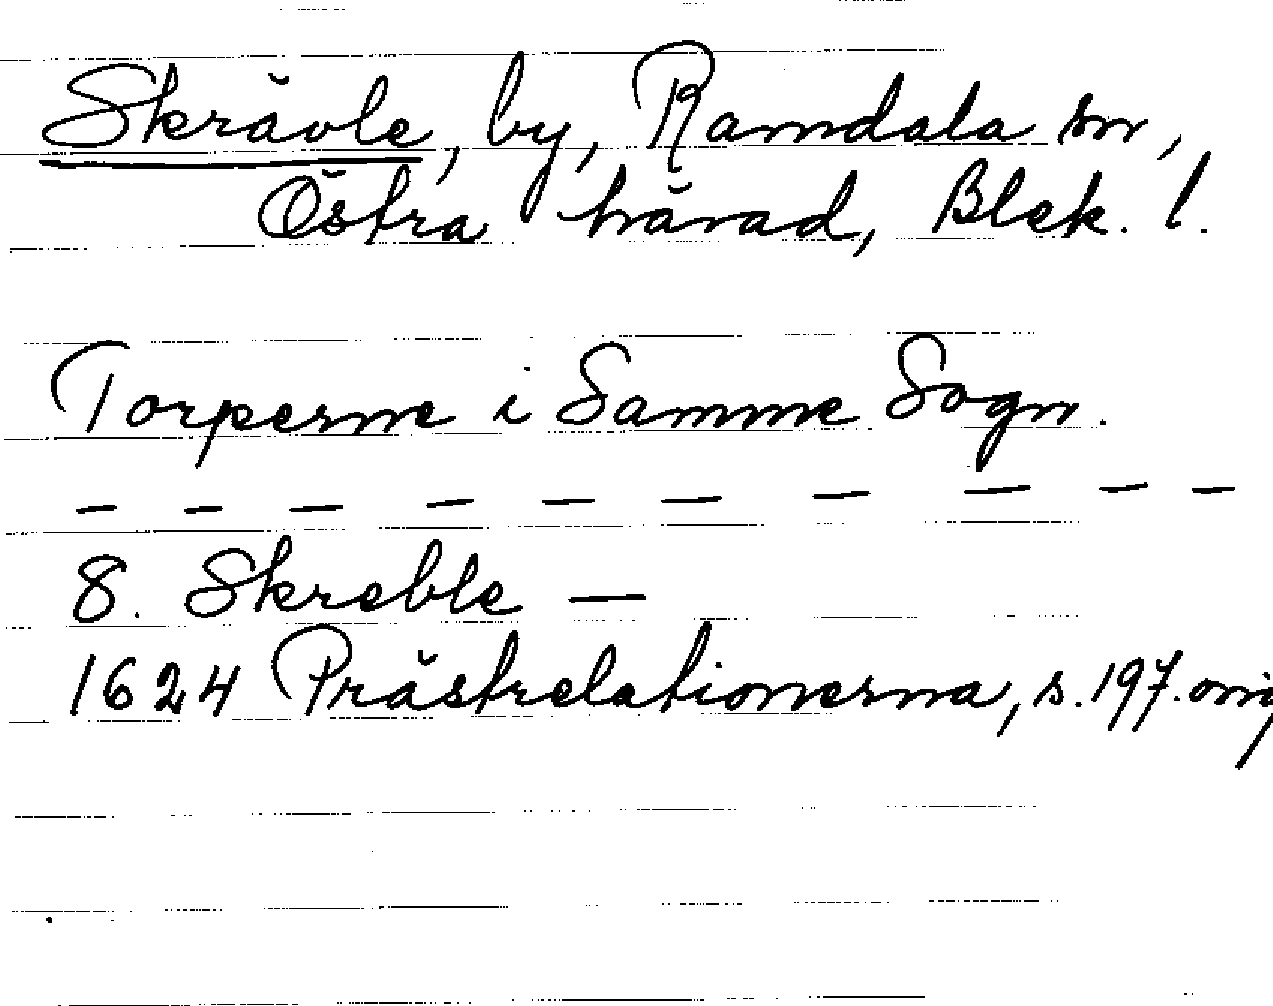 Skrävle, by, Ramdala sn,
Östra härad, Blek. l.
Torperne i Samme Sogn.
— — — — — — — — — —
8. Skreble —
1624 Prästrelationerna, s. 197. orig